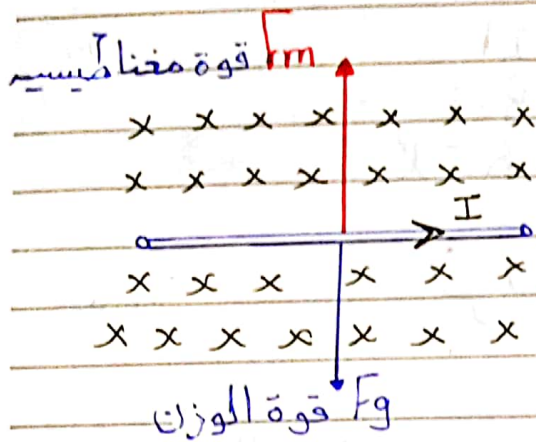 قوة مغناطيسية Fm
x x x x x x x
x x x x x x x
I
x x x x x x
x x x x x x x
Fg قوة الوزن